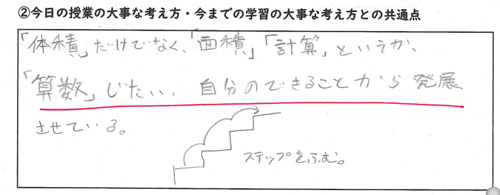 ②今日の授業の大事な考え方・今までの学習の大事な考え方との共通点
「体積」だけでなく、「面積」「計算」というか、
「算数」じたい、自分のできることから発展
させている。
ステップをふむ。